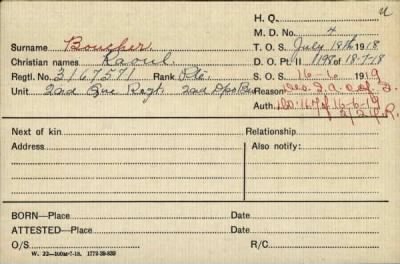 u
H. Q.
M. D. No. 4
Surname Boucher T. O. S. July 18th 1918
Christian names Raoul. D. O. Pt. II 119 of 18-7-18
Regtl. No. 3167571 Rank Pte. S. O. S. 16-6-1919
Unit 2nd Que Regt. 2nd Dpo Bn Reason
Auth. D.O. 167 of 16-6-19
2/2 Q.R.
Next of kin Relationship
Address Also notify:
BORN—Place Date
ATTESTED—Place Date
O/S R/C
W. 22—100M-7-18. 1772-39-839